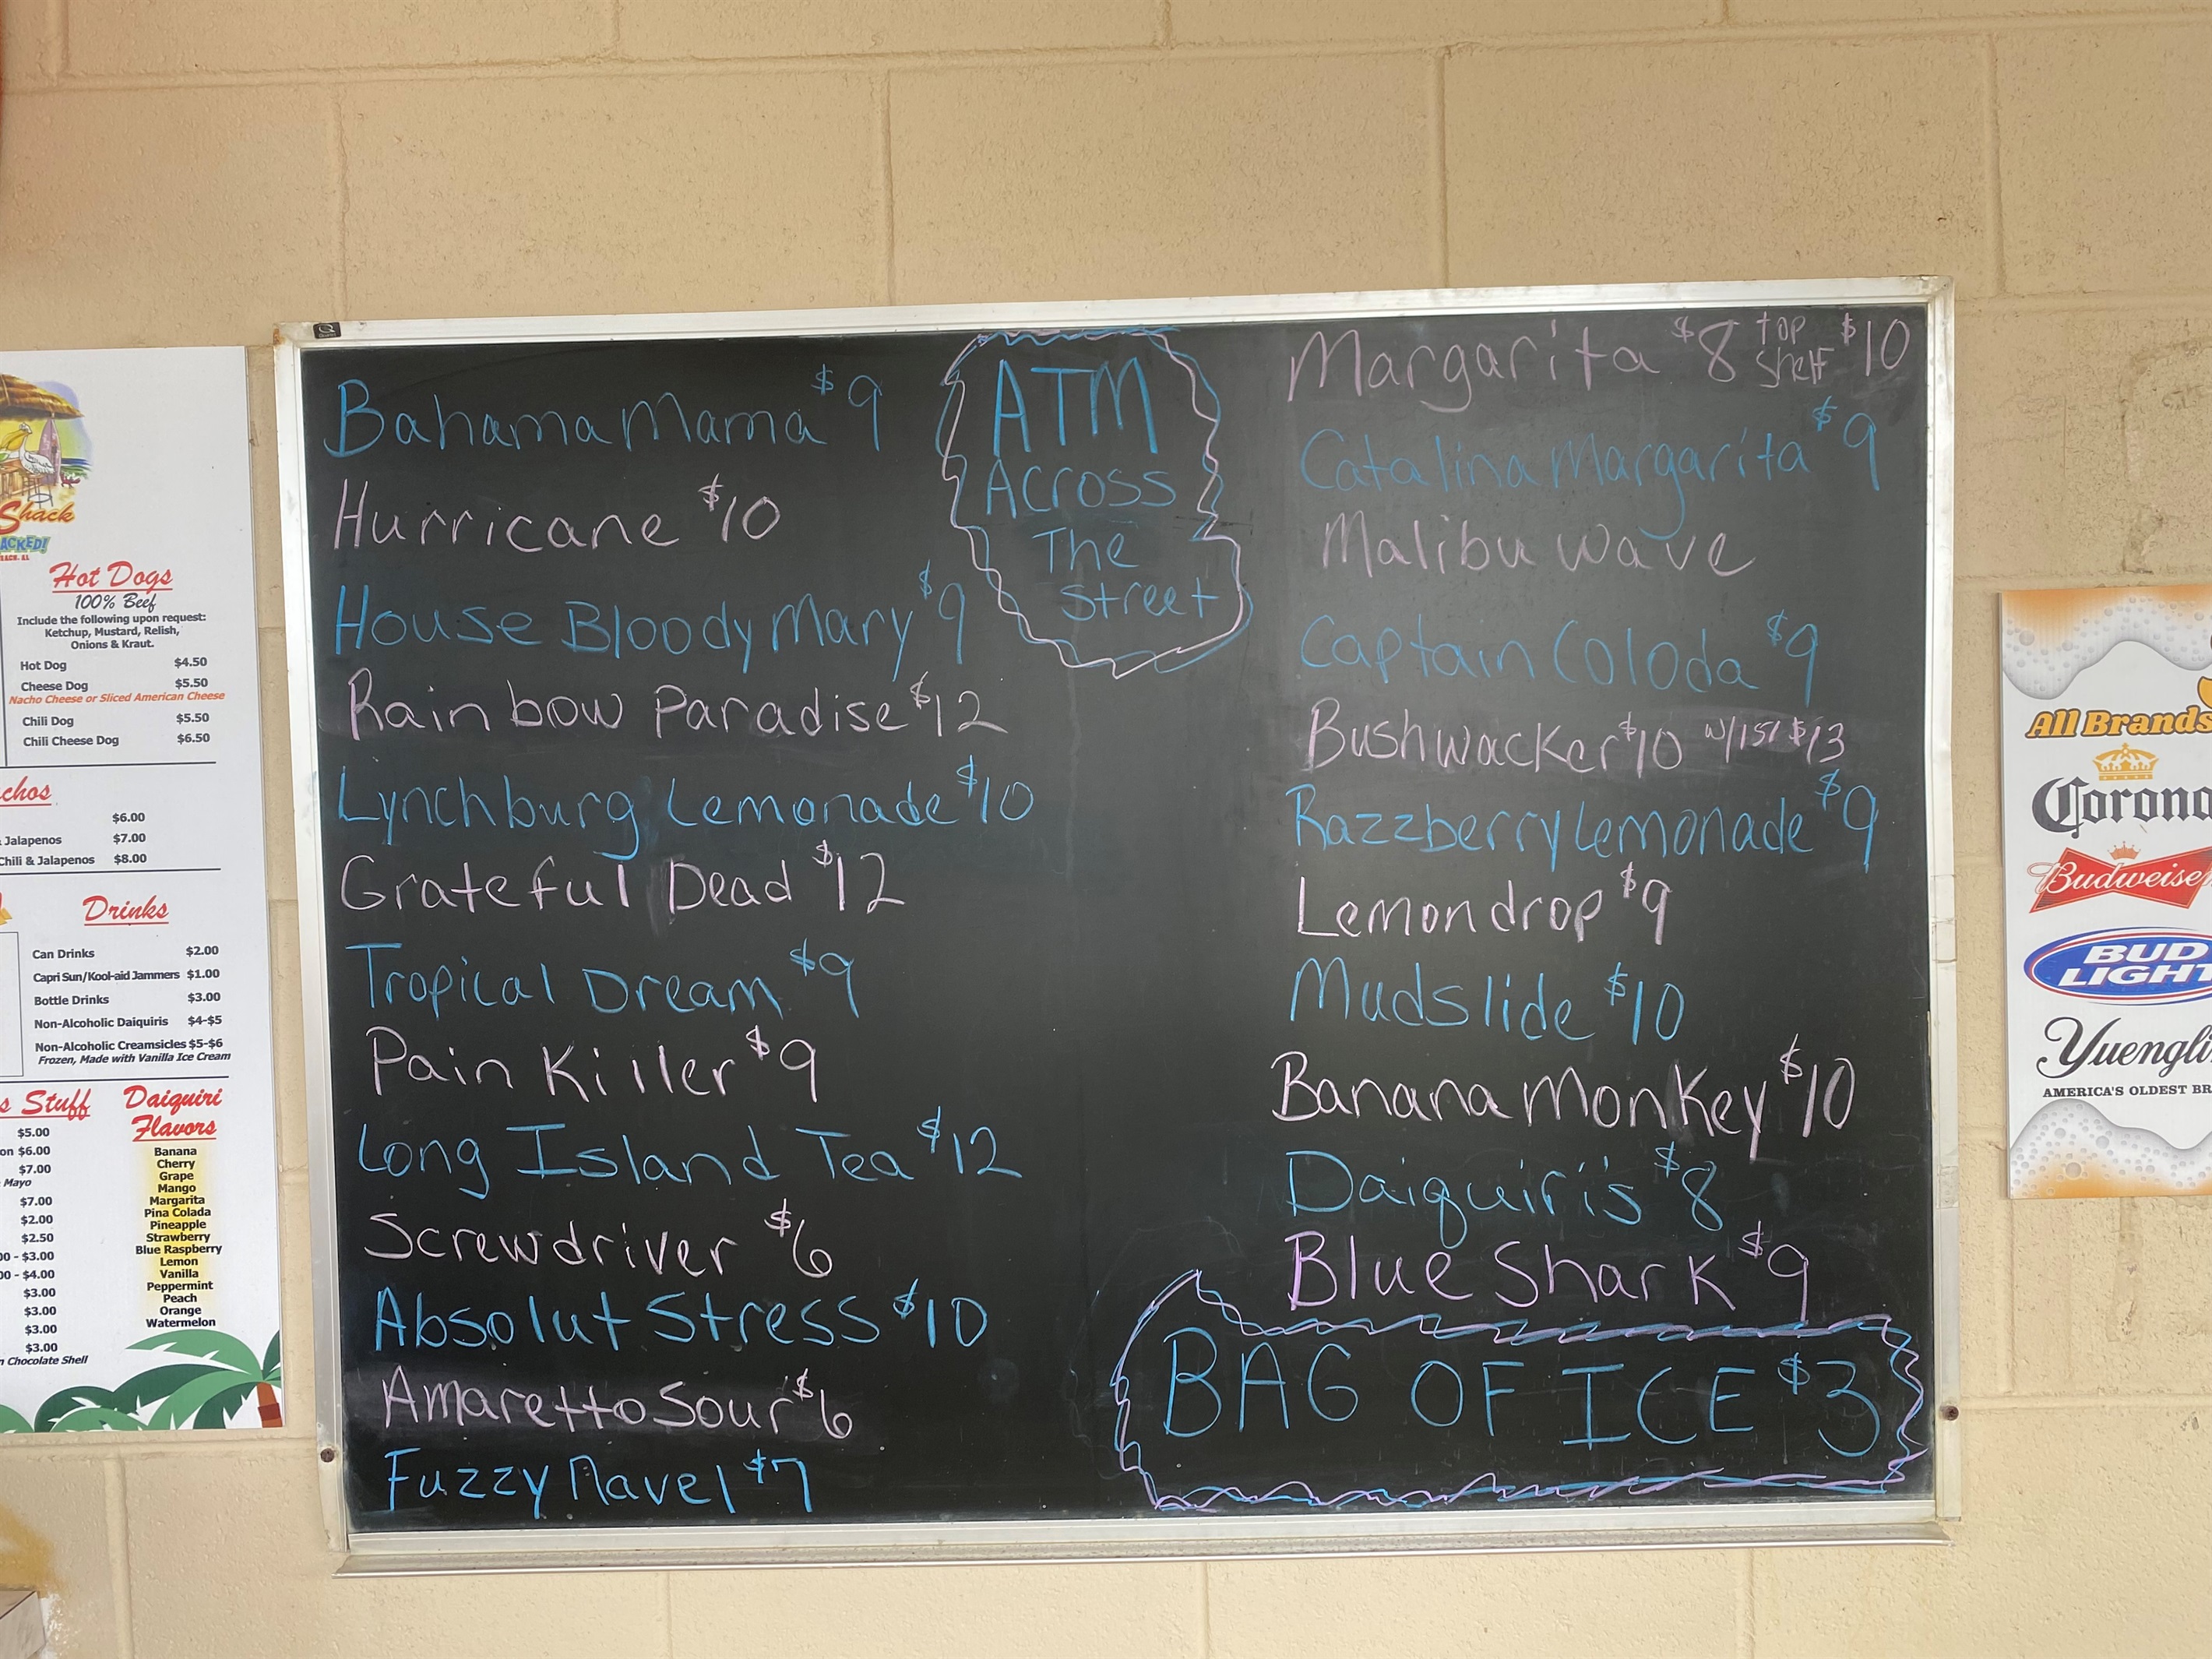 Shack
ACKED!
Hot Dogs
100% Beef
Include the following upon request:
Ketchup, Mustard, Relish,
Onions & Kraut.
Hot Dog $4.50
Cheese Dog $5.50
Nacho Cheese or Sliced American Cheese
Chili Dog $5.50
Chili Cheese Dog $6.50
chos
$6.00
Jalapenos $7.00
Chili & Jalapenos $8.00
Drinks
Can Drinks $2.00
Capri Sun/Kool-aid Jammers $1.00
Bottle Drinks $3.00
Non-Alcoholic Daiquiris $4-$5
Non-Alcoholic Creamsicles $5-$6
Frozen, Made with Vanilla Ice Cream
s Stuff
$5.00
on $6.00
$7.00
Mayo
$7.00
$2.00
$2.50
00 - $3.00
00 - $4.00
$3.00
$3.00
$3.00
$3.00
n Chocolate Shell
Daiquiri
Flavors
Banana
Cherry
Grape
Mango
Margarita
Pina Colada
Pineapple
Strawberry
Blue Raspberry
Lemon
Vanilla
Peppermint
Peach
Orange
Watermelon
Bahama Mama $9
Hurricane $10
House Bloody Mary $9
Rainbow Paradise $12
Lynchburg Lemonade $10
Grateful Dead $12
Tropical Dream $9
Pain Killer $9
Long Island Tea $12
Screwdriver $6
Absolut Stress $10
Amaretto Sour $6
Fuzzy Navel $7
ATM
Across
The
Street
Margarita $8 top shelf $10
Catalina Margarita $9
Malibu Wave
Captain Coloda $9
Bushwacker $10 w/151 $13
Razzberry Lemonade $9
Lemondrop $9
Mudslide $10
Banana Monkey $10
Daiquiri's $8
Blue Shark $9
BAG OF ICE $3
All Brands
Corona
Budweise
BUD
LIGHT
Yuengli
AMERICA'S OLDEST BR